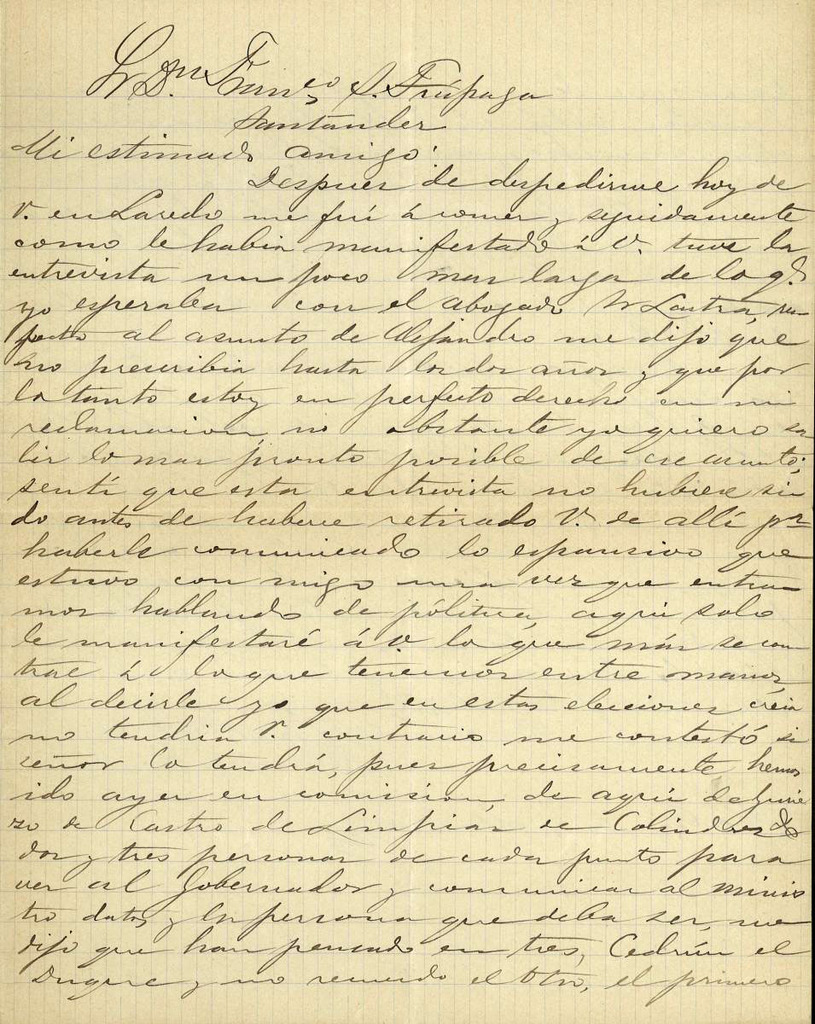 Sr Dn Franco S. Trápaga
Santander
Mi estimado amigo:
Despues de despedirme hoy de
V. en Laredo me fuí á comer y seguidamente
como le habia manifestado á V. tuve la
entrevista un poco mas larga de lo q.
yo esperaba con el abogado Sr Lastra, res
pecto al asunto de Alejandro me dijo que
no prescribia hasta los dos años y que por
lo tanto estoy en perfecto derecho en mi
reclamacion no obstante yo quiero sa
lir lo mas pronto posible de ese asunto;
sentí que esta entrevista no hubiese si
do antes de haberse retirado V. de allí pr
haberle comunicado lo espansivo que
estuvo con migo una vez que entra
mos hablando de pólitica, aqui solo
le manifestaré á V lo que más se con
trae á lo que tenemos entre manos,
al decirle yo que en estas elecciones creia
no tendria V. contrario me contestó si
señor lo tendrá, pues precisamente hemos
ido ayer en comision, de aqui de Gurie
zo de Castro de Limpias de Colindres
dos y tres personas de cada punto para
ver al Gobernador y comunicar al minis
tro datos y la persona que deba ser, me
dijo que han pensado en tres, Cedrún el
Duque y no recuerdo el otro, el primero